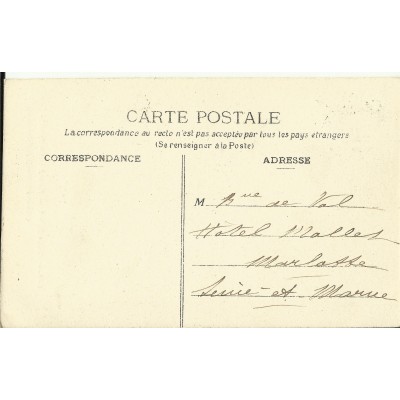 CARTE POSTALE
La correspondance au recto n'est pas acceptée par tous les pays étrangers
(Se renseigner à la Poste)
CORRESPONDANCE
ADRESSE
M de Val
Hotel Mallet
Marlotte
Seine et Marne